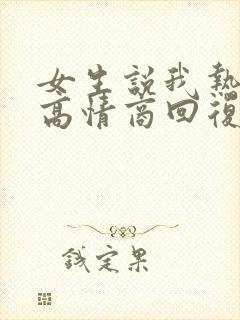 女生説我熱
高情商回復
钱定果